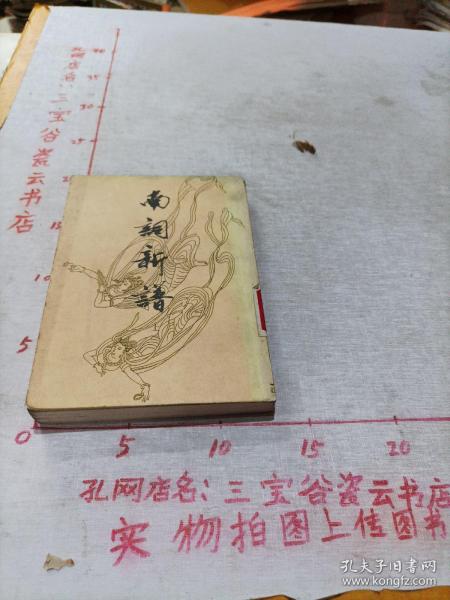 南词新谱
孔网店名：三宝谷瓷云书店
30
25
15
10
5
0
5
10
15
20
孔网店名：三宝谷瓷云书店
实物拍图上佳图书
孔夫子旧书网
www.kongfz.com